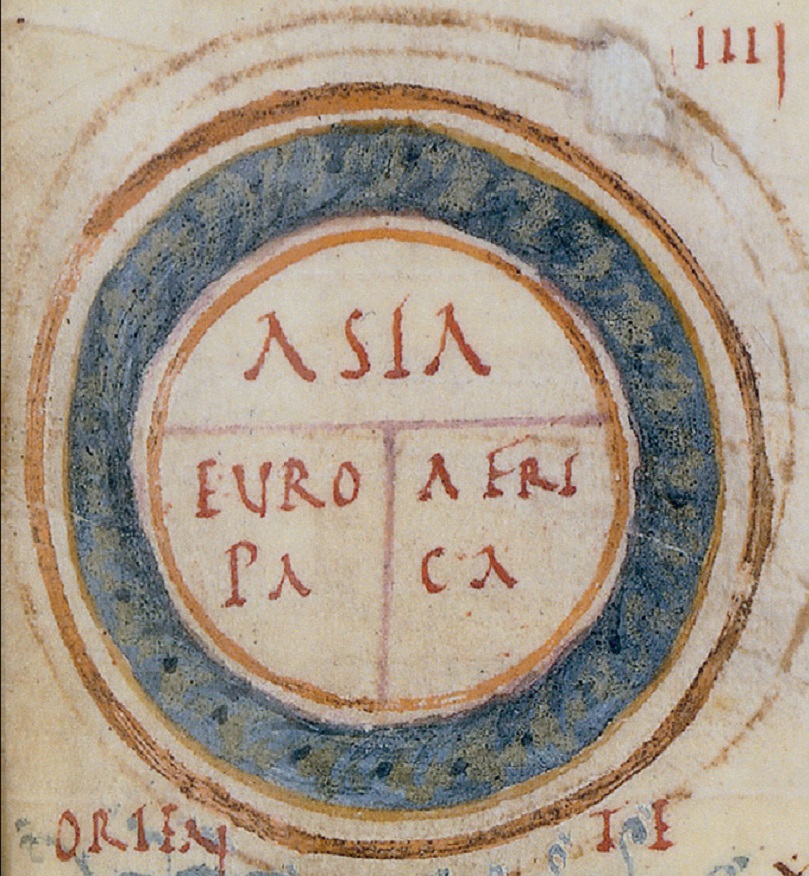 IIII
ASIA
EURO AFRI
PA CA
ORIEN TE